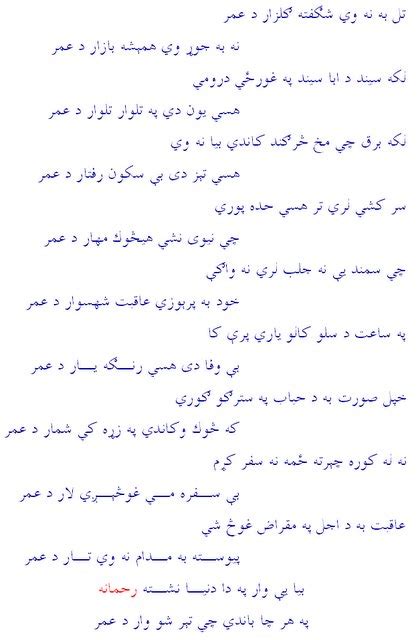 تل به نه وي شګفته ګلزار د عمر
نه به جوړ وي همېشه بازار د عمر
لکه سيند د ابا سيند په غورځي درومي
هسي يون دي په تلوار تلوار د عمر
لکه برق چي مخ څرګند کاندي بيا نه وي
هسي تېز دی بې سکون رفتار د عمر
سر کشي لري تر هسي حده پوري
چي نيوی نشي هيڅوك مهار د عمر
چي سمند يې نه جلب لري نه واګي
خود به پرېوزي عاقبت شهسوار د عمر
په ساعت د سلو کالو ياري پرې کا
بې وفا دی هسي رنګه يار د عمر
خپل صورت به د حباب په سترګو ګوري
که څوك وکاندي په زړه کي شمار د عمر
نه له کوره چېرته ځمه نه سفر کړم
بې سفره مي غوڅېږي لار د عمر
عاقبت به د اجل په مقراض غوڅ شي
پيوسته به مدام نه وي تار د عمر
بيا يې وار په دا دنيا نشته رحمانه
په هر چا باندي چي تېر شو وار د عمر